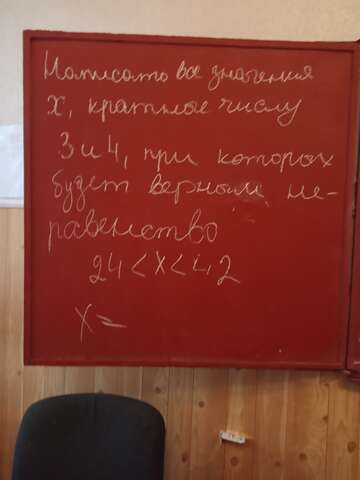 Написать все значения
x, кратные числу
3 и 4, при которых
будет верным не-
равенство
24 < x < 42
x =